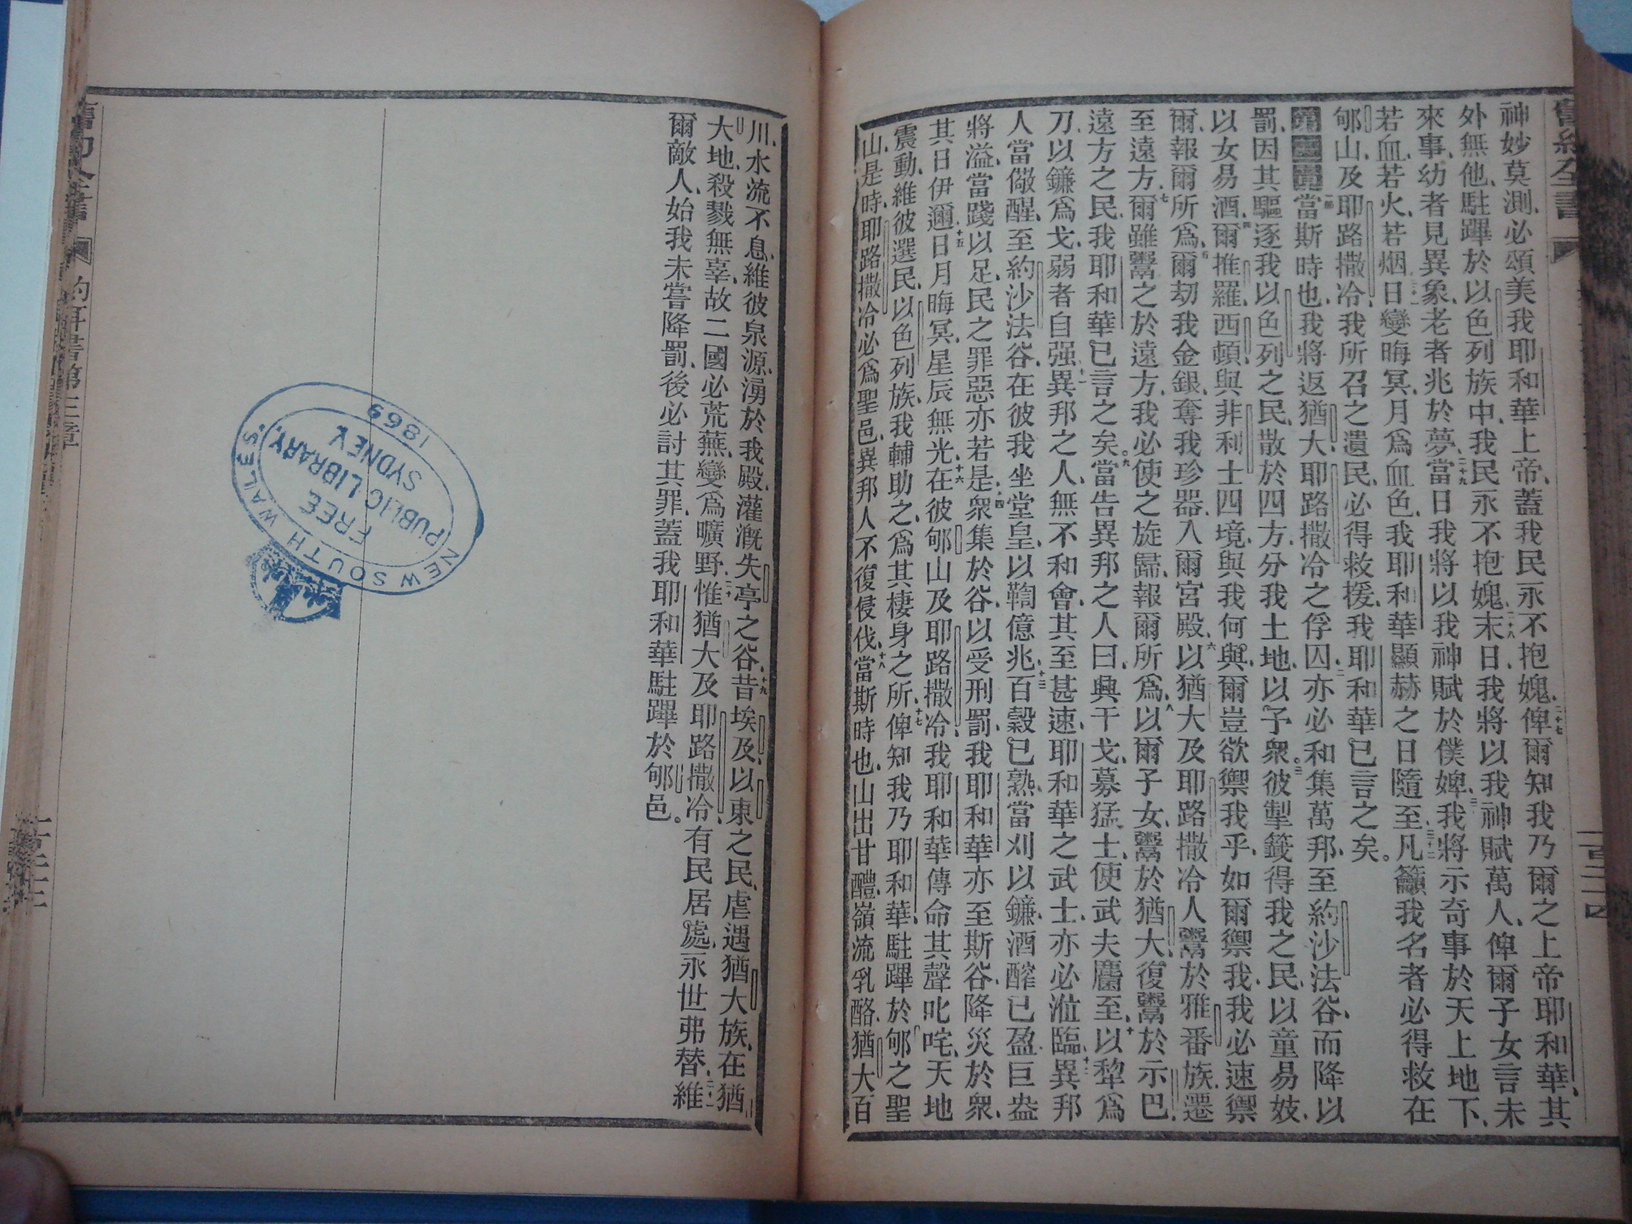 舊約全書
神妙莫測、必頌美我耶和華上帝、蓋我民永不抱媿、二十七俾爾知我乃爾之上帝耶和華、其
外無他、駐蹕於以色列族中、我民永不抱媿、二十八末日、我將以我神賦萬人、俾爾子女言未
來事、幼者見異象、老者兆於夢、二十九當日我將以我神賦於僕婢、三十我將示奇事於天上地下、
若血、若火、若烟、三十一日變晦冥、月爲血色、我耶和華顯赫之日隨至、三十二凡籲我名者必得救、在
郇山、及耶路撒冷、我所召之遺民、必得救援、我耶和華已言之矣。
第三章一當斯時也、我將返猶大耶路撒冷之俘囚、二亦必和集萬邦、至約沙法谷、而降以
罰、因其驅逐我以色列之民、散於四方、分我土地、以予衆、三彼掣籤得我之民、以童易妓、
以女易酒、四爾推羅西頓與非利士四境、與我何與、爾豈欲禦我乎、如爾禦我、我必速禦
爾、報爾所爲、五爾刧我金銀、奪我珍器、入爾宮殿、六以猶大及耶路撒冷人、鬻於雅番族、遷
至遠方、七爾雖鬻之於遠方、我必使之旋歸、報爾所爲、八以爾子女、鬻於猶大、復鬻於示巴
遠方之民、我耶和華已言之矣、九當告異邦之人曰、興干戈、募猛士、使武夫麕至、十以犂爲
刀、以鐮爲戈、弱者自强、十一異邦之人、無不和會、其至甚速、耶和華之武士、亦必涖臨、十二異邦
人當儆醒、至約沙法谷、在彼我坐堂皇、以鞫億兆、十三百穀已熟、當刈以鐮、酒醡已盈、巨盎
將溢、當踐以足、民之罪惡亦若是、十四衆集於谷、以受刑罰、我耶和華亦至斯谷、降災於衆、
其日伊邇、十五日月晦冥、星辰無光、十六在彼郇山及耶路撒冷、我耶和華傳命、其聲叱咤、天地
震動、維彼選民、以色列族、我輔助之、爲其棲身之所、十七俾知我乃耶和華、駐蹕於郇之聖
山、是時耶路撒冷必爲聖邑、異邦人不復侵伐、十八當斯時也、山出甘醴、嶺流乳酪、猶大百
川、水流不息、維彼泉源、湧於我殿、灌溉失亭之谷、十九昔埃及以東之民、虐遇猶大族、在猶
大地、殺戮無辜、故二國必荒蕪、變爲曠野、二十惟猶大及耶路撒冷、有民居處、永世弗替、二十一維
爾敵人、始我未嘗降罰、後必討其罪、蓋我耶和華駐蹕於郇邑。
約耳書第三章
NEW SOUTH WALES.
FREE
PUBLIC LIBRARY,
SYDNEY
1869